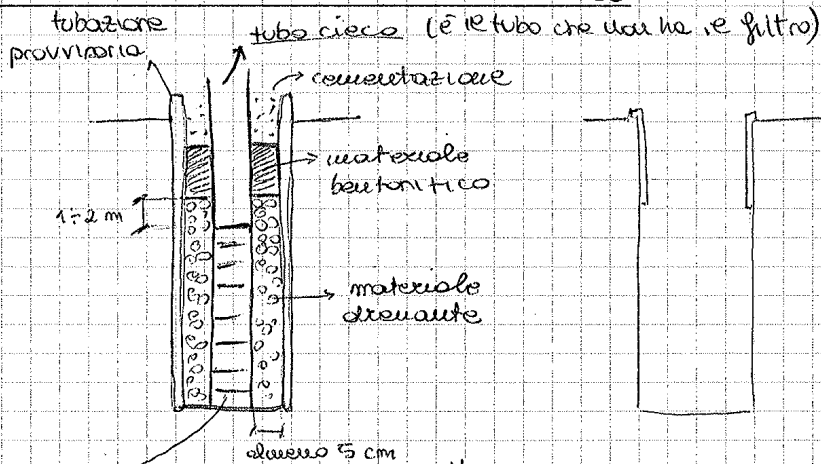 tubazione
provvisoria
tubo cieco (è il tubo che non ha il filtro)
cementazione
materiale
bentonitico
1÷2 m
materiale
drenante
almeno 5 cm